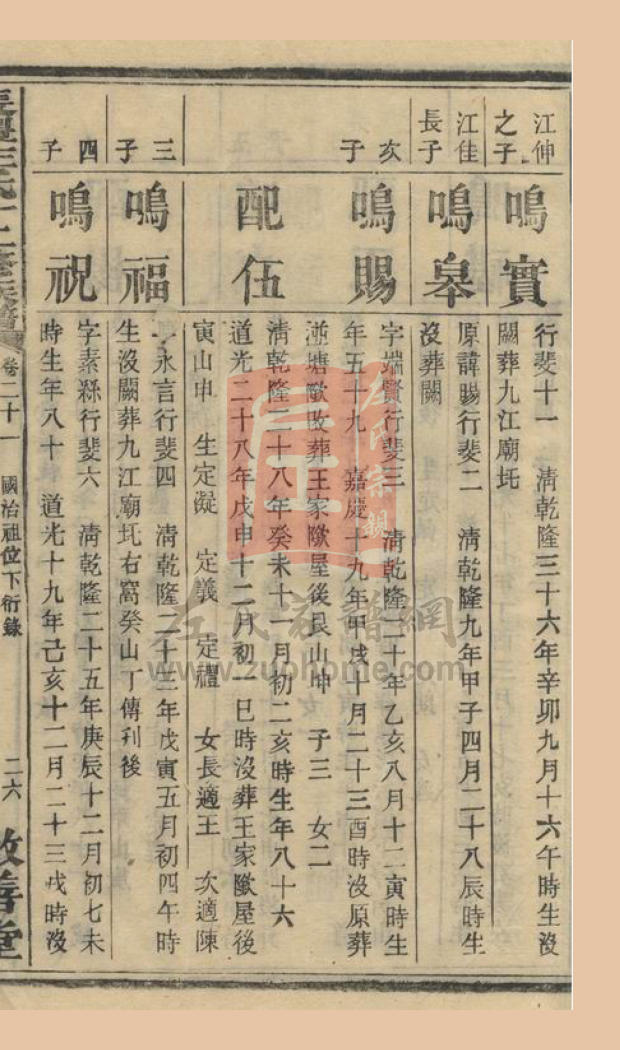 江伸
之子
鳴實
行斐十一 清乾隆三十六年辛卯九月十六午時生沒
闕葬九江廟圫
江佳
長子
鳴皋
原諱賜行斐二 清乾隆九年甲子四月二十八辰時生
沒葬闕
次
子
鳴賜
字端賢行斐三 清乾隆二十年乙亥八月十二寅時生
年五十九 嘉慶十九年甲戌十月二十三酉時沒原葬
塘歐改葬王家歐屋後艮山坤 子三 女二
配伍
清乾隆二十八年癸未十一月初二亥時生年八十六
道光二十八年戊申十二月初一巳時沒葬王家歐屋後
寅山申 生定凝 定義 定禮 女長適王 次適陳
三
子
鳴福
永言行斐四 清乾隆二十三年戊寅五月初四午時
生沒闕葬九江廟圫右窩癸山丁傳刊後
四
子
鳴祝
字素繇行斐六 清乾隆二十五年庚辰十二月初七未
時生年八十 道光十九年己亥十二月二十三戌時沒
左氏十二修族譜
卷二十一
國治祖位下衍錄
二六
敦善堂
左氏宗親
左氏家譜網
www.zuohome.com